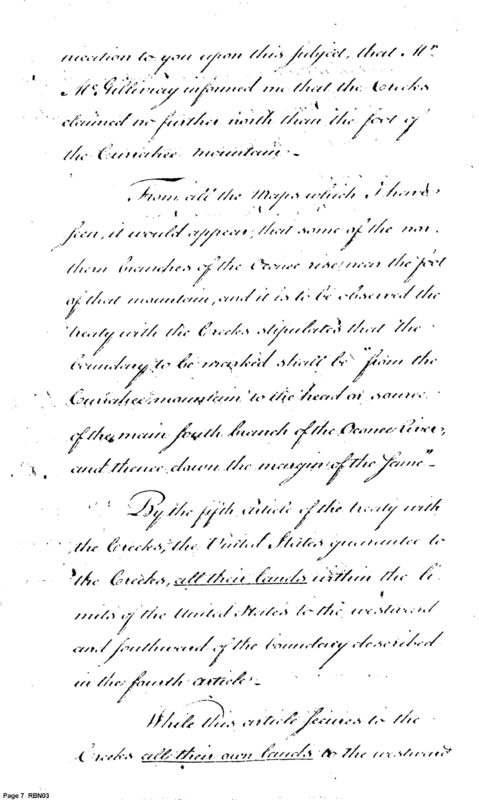 nication to you upon this subject, that Mr.
McGillivray informed me that the Creeks
claimed no further north than the foot of
the Currahee mountain—
From all the maps which I have
seen, it would appear, that some of the nor-
thern branches of the Oconee rise near the foot
of that mountain, and it is to be observed the
treaty with the Creeks stipulates that the
boundary to be marked shall be "from the
Currahee mountain to the head or source
of the main south branch of the Oconee River,
and thence down the margin of the same"—
By the fifth article of the treaty with
the Creeks, the United States guarantee to
the Creeks, all their lands within the li-
mits of the United States to the westward
and southward of the boundary described
in the fourth article—
While this article secures to the
Creeks all their own lands to the westward
Page 7 RBN03